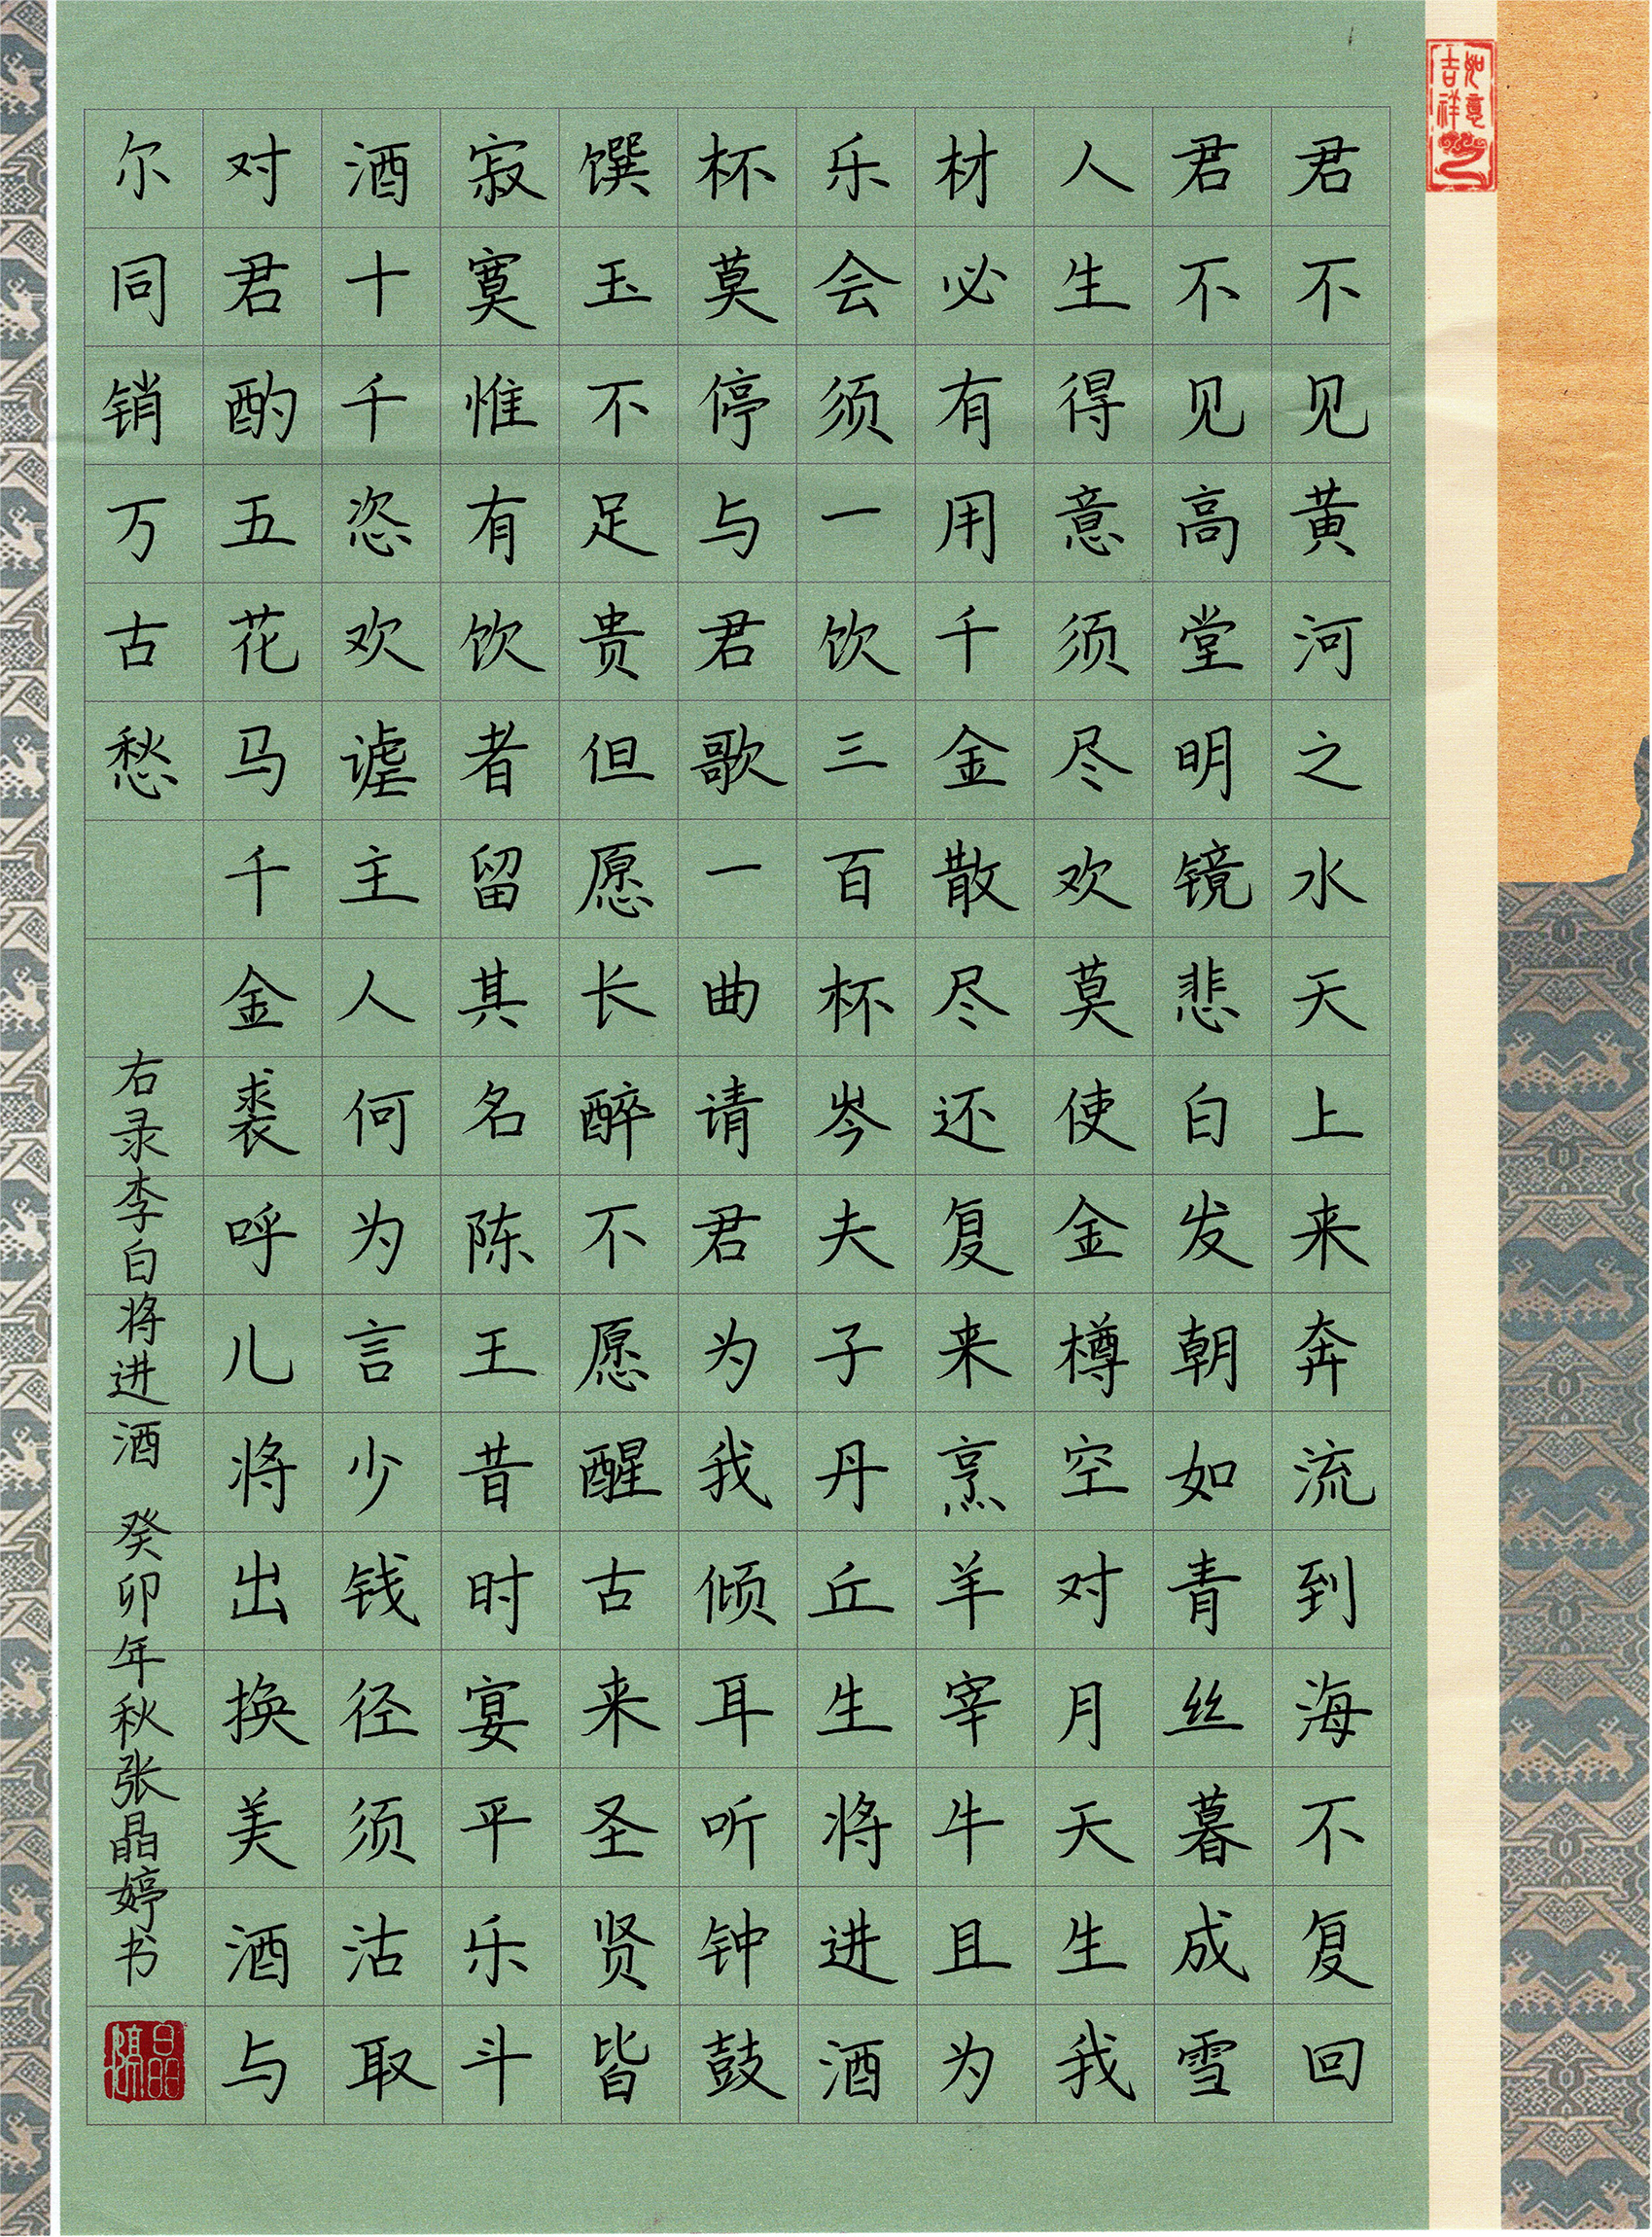 如意
吉祥
君不见黄河之水天上来奔流到海不复回
君不见高堂明镜悲白发朝如青丝暮成雪
人生得意须尽欢莫使金樽空对月天生我
材必有用千金散尽还复来烹羊宰牛且为
乐会须一饮三百杯岑夫子丹丘生将进酒
杯莫停与君歌一曲请君为我倾耳听钟鼓
馔玉不足贵但愿长醉不愿醒古来圣贤皆
寂寞惟有饮者留其名陈王昔时宴平乐斗
酒十千恣欢谑主人何为言少钱径须沽取
对君酌五花马千金裘呼儿将出换美酒与
尔同销万古愁
右录李白将进酒 癸卯年秋张晶婷书
晶婷